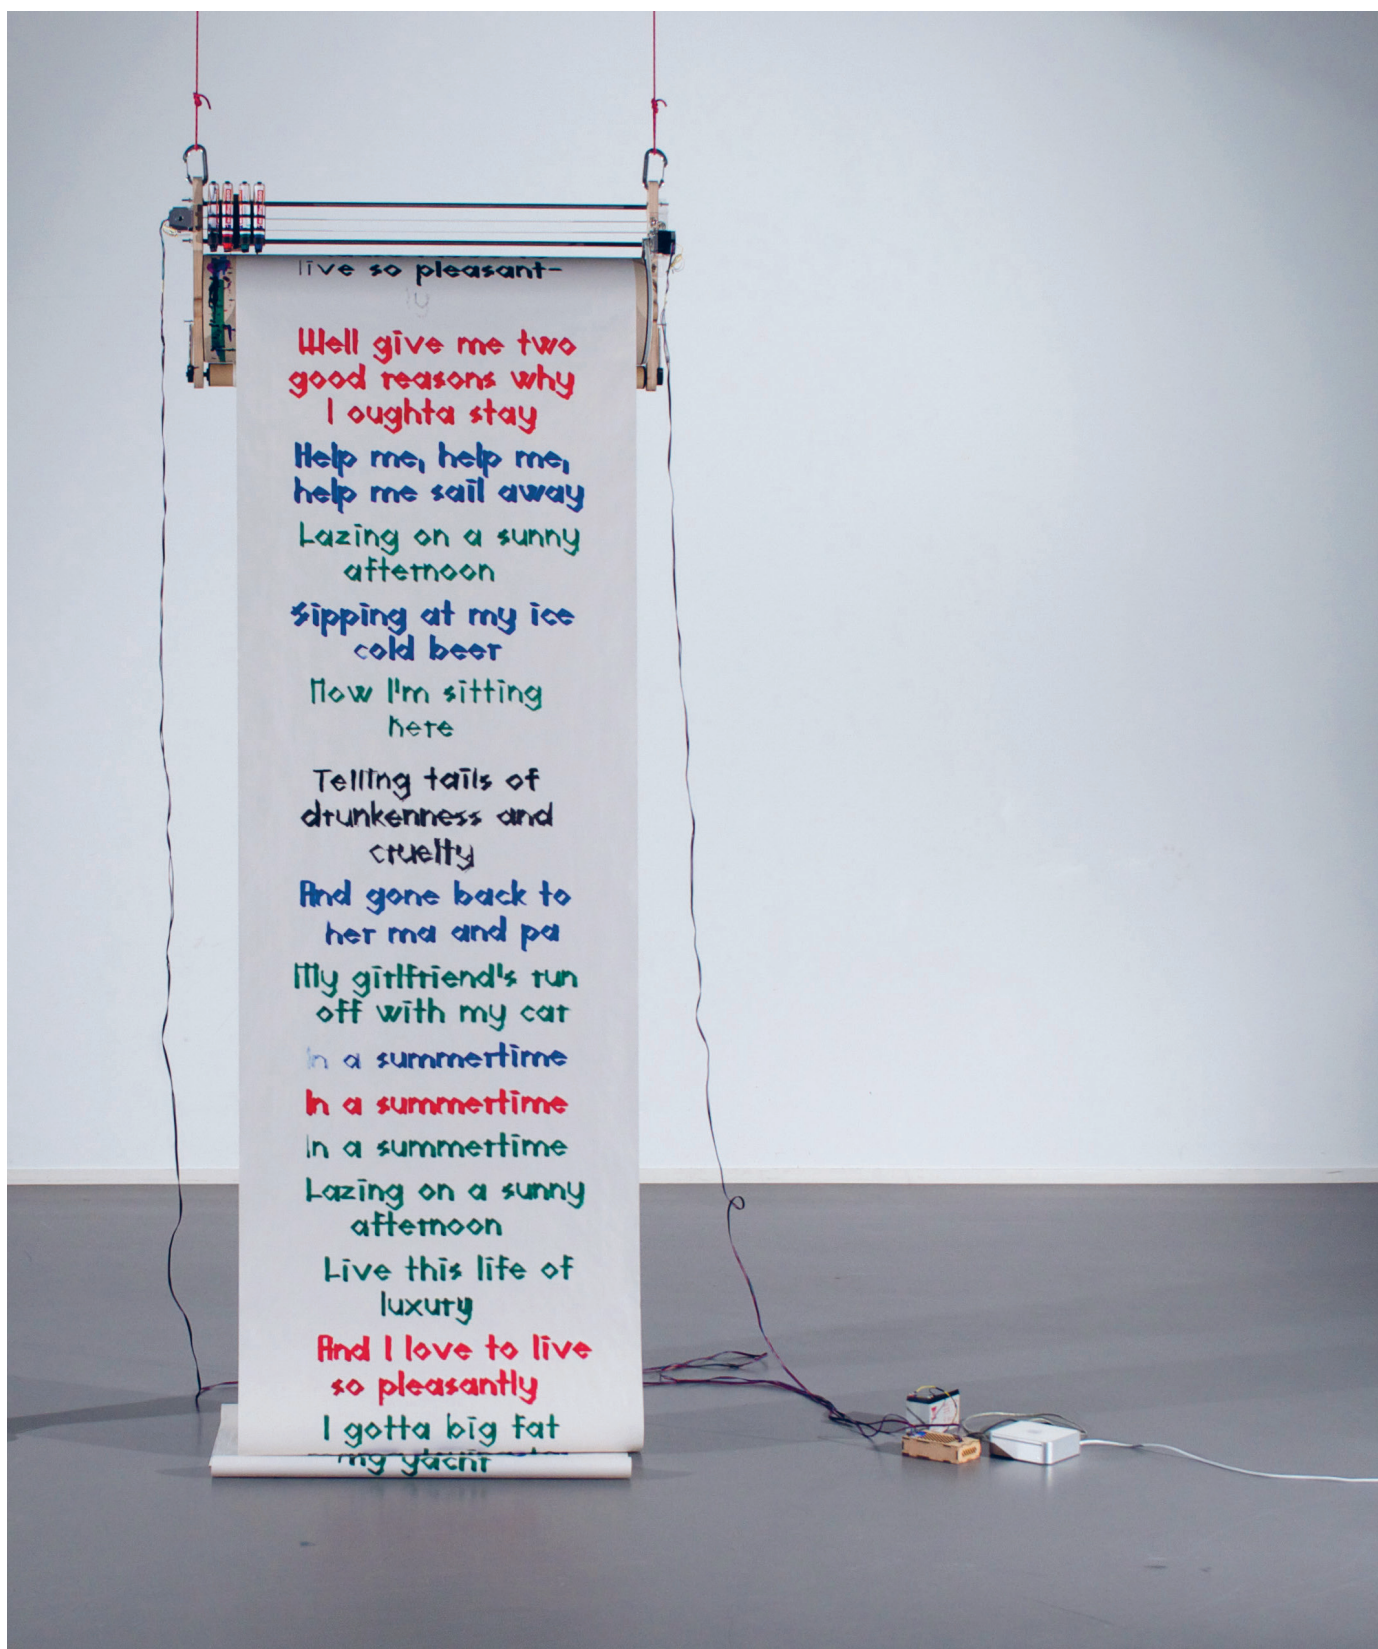 live so pleasant-
ly
Well give me two
good reasons why
I oughta stay
Help me, help me,
help me sail away
Lazing on a sunny
afternoon
Sipping at my ice
cold beer
Now I'm sitting
here
Telling tails of
drunkenness and
cruelty
And gone back to
her ma and pa
My girlfriend's run
off with my car
In a summertime
In a summertime
In a summertime
Lazing on a sunny
afternoon
Live this life of
luxury
And I love to live
so pleasantly
I gotta big fat
my yacht